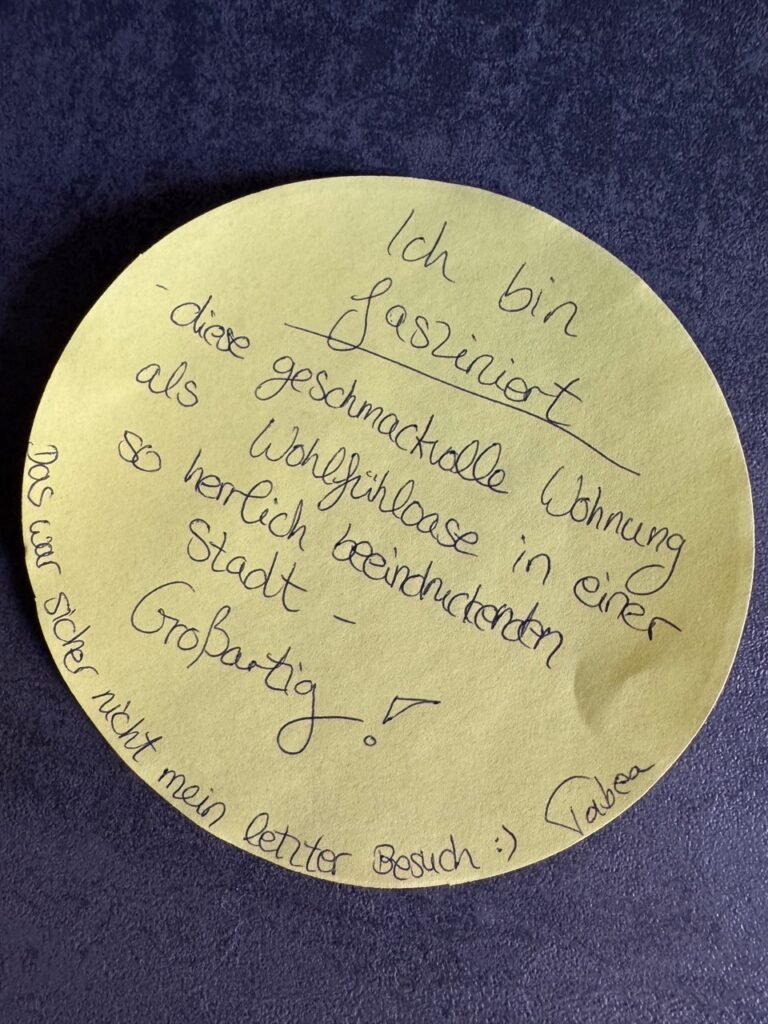 Ich bin
fasziniert
- diese geschmackvolle Wohnung
als Wohlfühloase in einer
so herrlich beeindruckenden
Stadt -
Großartig!
Das war sicher nicht mein letzter Besuch :) Tabea